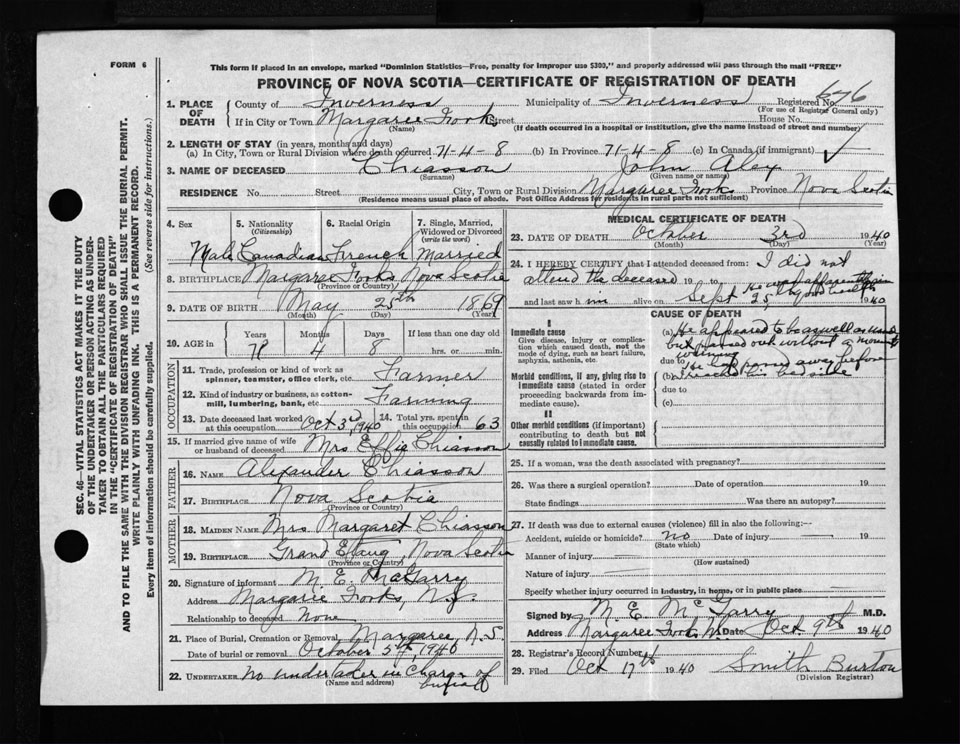 FORM 6
This form if placed in an envelope, marked "Dominion Statistics—Free, penalty for improper use $300," and properly addressed will pass through the mail "FREE"
PROVINCE OF NOVA SCOTIA—CERTIFICATE OF REGISTRATION OF DEATH
1. PLACE OF DEATH County of Inverness Municipality of Inverness Registered No. 676
(For use of Registrar General only)
If in City or Town Margaree Forks Street House No.
(Name) (If death occurred in a hospital or institution, give the name instead of street and number)
2. LENGTH OF STAY (in years, months and days)
(a) In City, Town or Rural Division where death occurred 71-4-8 (b) In Province 71-4-8 (c) In Canada (if immigrant)
3. NAME OF DECEASED Chiasson John Alex
(Surname) (Given name or names)
RESIDENCE No. Street City, Town or Rural Division Margaree Forks Province Nova Scotia
(Residence means usual place of abode. Post Office Address for residents in rural parts not sufficient)
4. Sex 5. Nationality (Citizenship) 6. Racial Origin 7. Single, Married, Widowed or Divorced (write the word)
Male Canadian French Married
8. BIRTHPLACE Margaree Forks Nova Scotia
(Province or Country)
9. DATE OF BIRTH May 25th 1869
(Month) (Day) (Year)
10. AGE in Years Months Days If less than one day old
71 4 8 hrs. or min.
OCCUPATION
11. Trade, profession or kind of work as spinner, teamster, office clerk, etc. Farmer
12. Kind of industry or business, as cotton-mill, lumbering, bank, etc. Farming
13. Date deceased last worked at this occupation Oct 3rd, 1940 14. Total yrs. spent in this occupation 63
15. If married give name of wife or husband of deceased Mrs Effie Chiasson
FATHER
16. NAME Alexander Chiasson
17. BIRTHPLACE Nova Scotia
(Province or Country)
MOTHER
18. MAIDEN NAME Mrs Margaret Chiasson
19. BIRTHPLACE Grand Etang, Nova Scotia
(Province or Country)
20. Signature of informant M. E. McGarry
Address Margaree Forks, N.S.
Relationship to deceased None
21. Place of Burial, Cremation or Removal Margaree, N.S.
Date of burial or removal October 5th, 1940
22. UNDERTAKER No undertaker in charge of burial
(Name and address)
MEDICAL CERTIFICATE OF DEATH
23. DATE OF DEATH October 3rd 1940
(Month) (Day) (Year)
24. I HEREBY CERTIFY that I attended deceased from: I did not
attend the deceased 19 to 19 He was apparently in
and last saw him alive on Sept 25th good health 1940
CAUSE OF DEATH
I
Immediate cause
Give disease, injury or complication which caused death, not the mode of dying, such as heart failure, asphyxia, asthenia, etc.
(a) He appeared to be as well as usual
but passed out without a moments
warning
due to
He had passed away before
(b) I reached his bedside
Morbid conditions, if any, giving rise to immediate cause (stated in order proceeding backwards from immediate cause).
due to
(c)
II
Other morbid conditions (if important) contributing to death but not causally related to immediate cause.
25. If a woman, was the death associated with pregnancy?
26. Was there a surgical operation? Date of operation 19
State findings Was there an autopsy?
27. If death was due to external causes (violence) fill in also the following:—
Accident, suicide or homicide? No Date of injury 19
(State which)
Manner of injury
(How sustained)
Nature of injury
Specify whether injury occurred in industry, in home, or in public place
Signed by M. E. McGarry M.D.
Address Margaree Forks N.S. Date Oct. 9th 1940
28. Registrar's Record Number
29. Filed Oct 17th 1940 Smith Burton
(Division Registrar)
SEC. 46—VITAL STATISTICS ACT MAKES IT THE DUTY
OF THE UNDERTAKER OR PERSON ACTING AS UNDER-
TAKER TO OBTAIN ALL THE PARTICULARS REQUIRED
IN THE "CERTIFICATE OF REGISTRATION OF DEATH"
AND TO FILE THE SAME WITH THE DIVISION REGISTRAR WHO SHALL ISSUE THE BURIAL PERMIT.
WRITE PLAINLY WITH UNFADING INK. THIS IS A PERMANENT RECORD.
Every item of information should be carefully supplied. (See reverse side for instructions.)